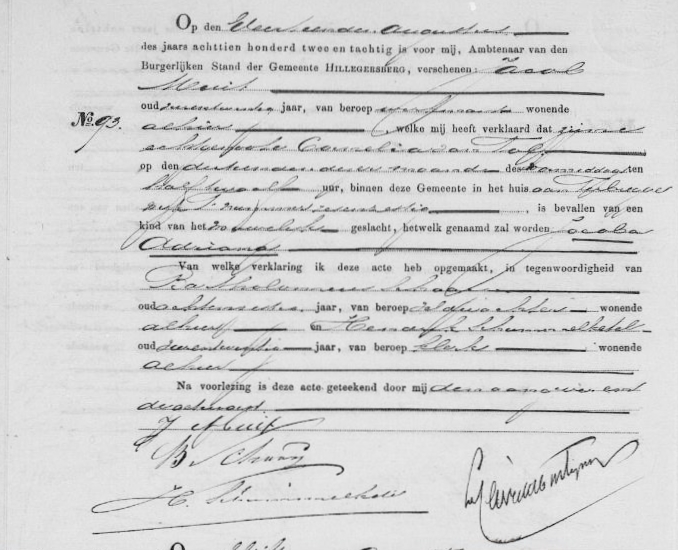 Op den Veertienden Augustus
des jaars achttien honderd twee en tachtig is voor mij, Ambtenaar van den
Burgerlijken Stand der Gemeente HILLEGERSBERG, verschenen: Jacob
Muit
oud jaar, van beroep werkman wonende
No. 93. alhier, welke mij heeft verklaard dat zijne
echtgenoote Cornelia van Tol
op den dertienden dezer maand des voormiddags ten
half twaalf uur, binnen deze Gemeente in het huis aan
wijk is bevallen van een
kind van het vrouwelijke geslacht, hetwelk genaamd zal worden Jacoba
Adriana
Van welke verklaring ik deze acte heb opgemaakt, in tegenwoordigheid van
Bartholomeus Schoof
oud jaar, van beroep veldwachter wonende
alhier en Hendrik Schimmelketel
oud jaar, van beroep klerk wonende
alhier
Na voorlezing is deze acte geteekend door mij den aangever en
de getuigen.
J Muit
B Schoof
H. Schimmelketel